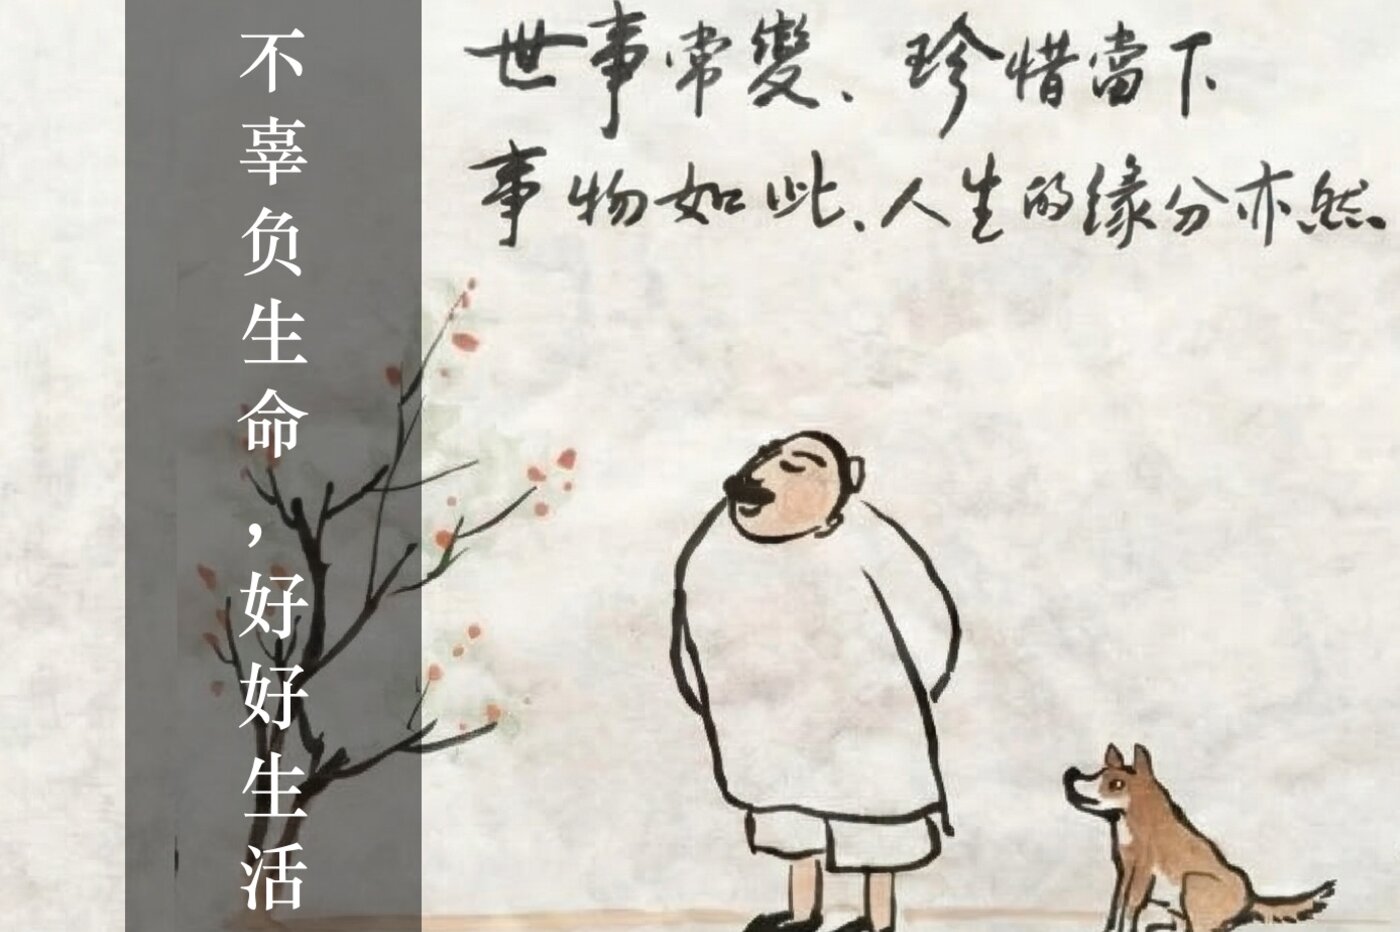 不辜负生命，好好生活
世事常變、珍惜當下
事物如此、人生的缘分亦然、